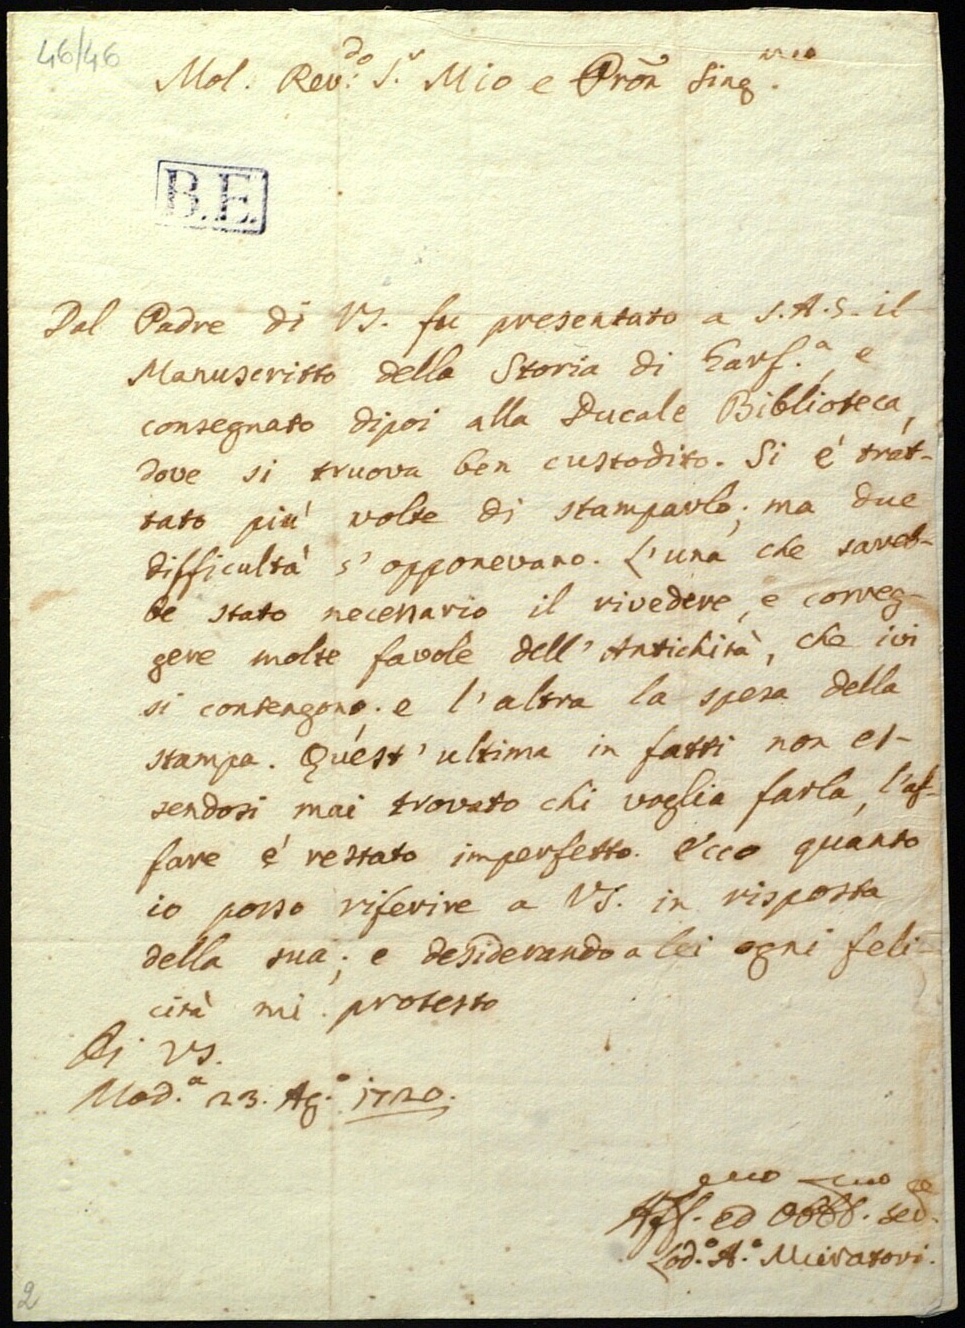 46/46
Mol. Rev.do S.r Mio e Pron Sing.mo
B.E.
Dal Padre di VS. fu presentato a S.A.S. il
Manuscritto della Storia di Garf.a, e
consegnato dipoi alla Ducale Biblioteca,
dove si truova ben custodito. Si é trat-
tato piú volte di stamparlo; ma due
difficultà s'opponevano. L'una che sareb-
be stato necessario il rivedere, e correg-
gere molte favole dell'Antichità, che ivi
si contengono. e l'altra la spesa della
stampa. Quest'ultima in fatti non es-
sendosi mai trovato chi voglia farla, l'af-
fare é restato imperfetto. Ecco quanto
io posso riferire a VS. in risposta
della sua; e desiderando a lei ogni feli-
cità mi protesto
Di VS.
Mod.a 23. Ag.o 1720.
Aff.mo ed Obb.mo ser.
Lod.o A.o Muratori.
2